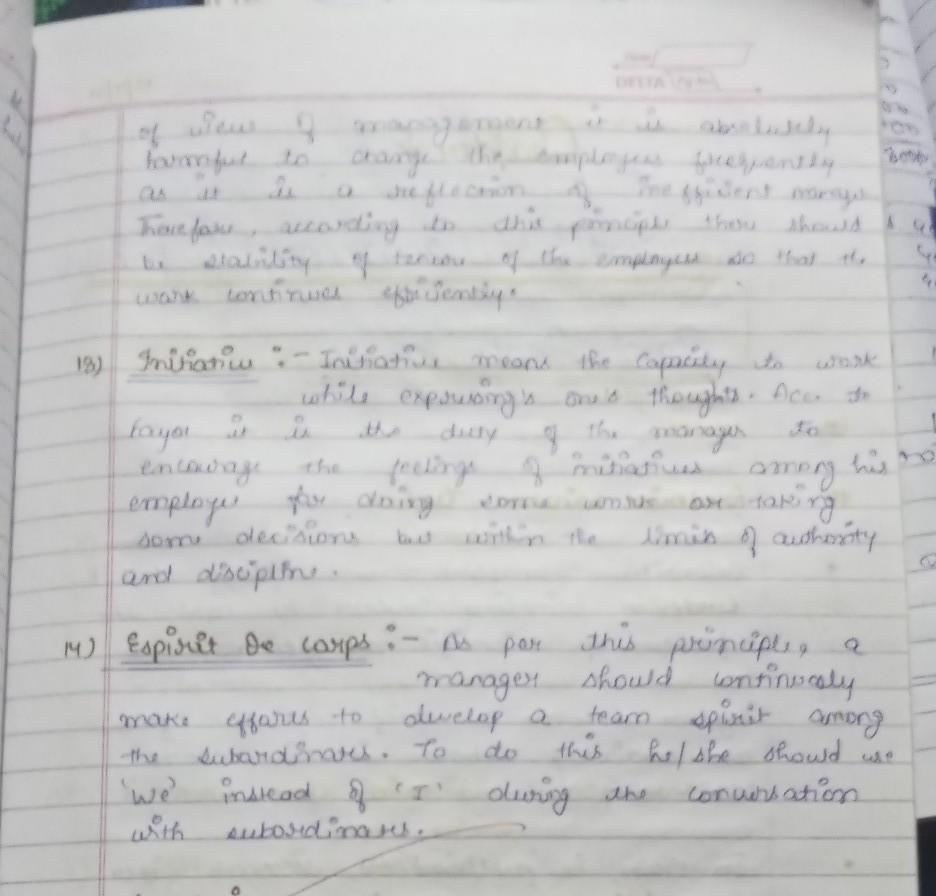 DELTA
of view of management it is absolutely
harmful to change the employees frequently
as it is a reflection of inefficient manage
Therefore, according to this principle there should
be stability of tenure of the employees so that the
work continues efficiently.
13) Initiative :- Initiative means the capacity to work
while expressing's one's thoughts. Acc. to
fayol it is the duty of the manager to
encourage the feelings of initiatives among his
employe for doing some work or taking
some decisions but within the limits of authority
and discipline.
14) Espirit De Corps :- As per this principle, a
manager should continuosly
make efforts to develop a team spirit among
the subordinates. To do this he/she should use
'We' instead of 'I' during the conversation
with subordinates.